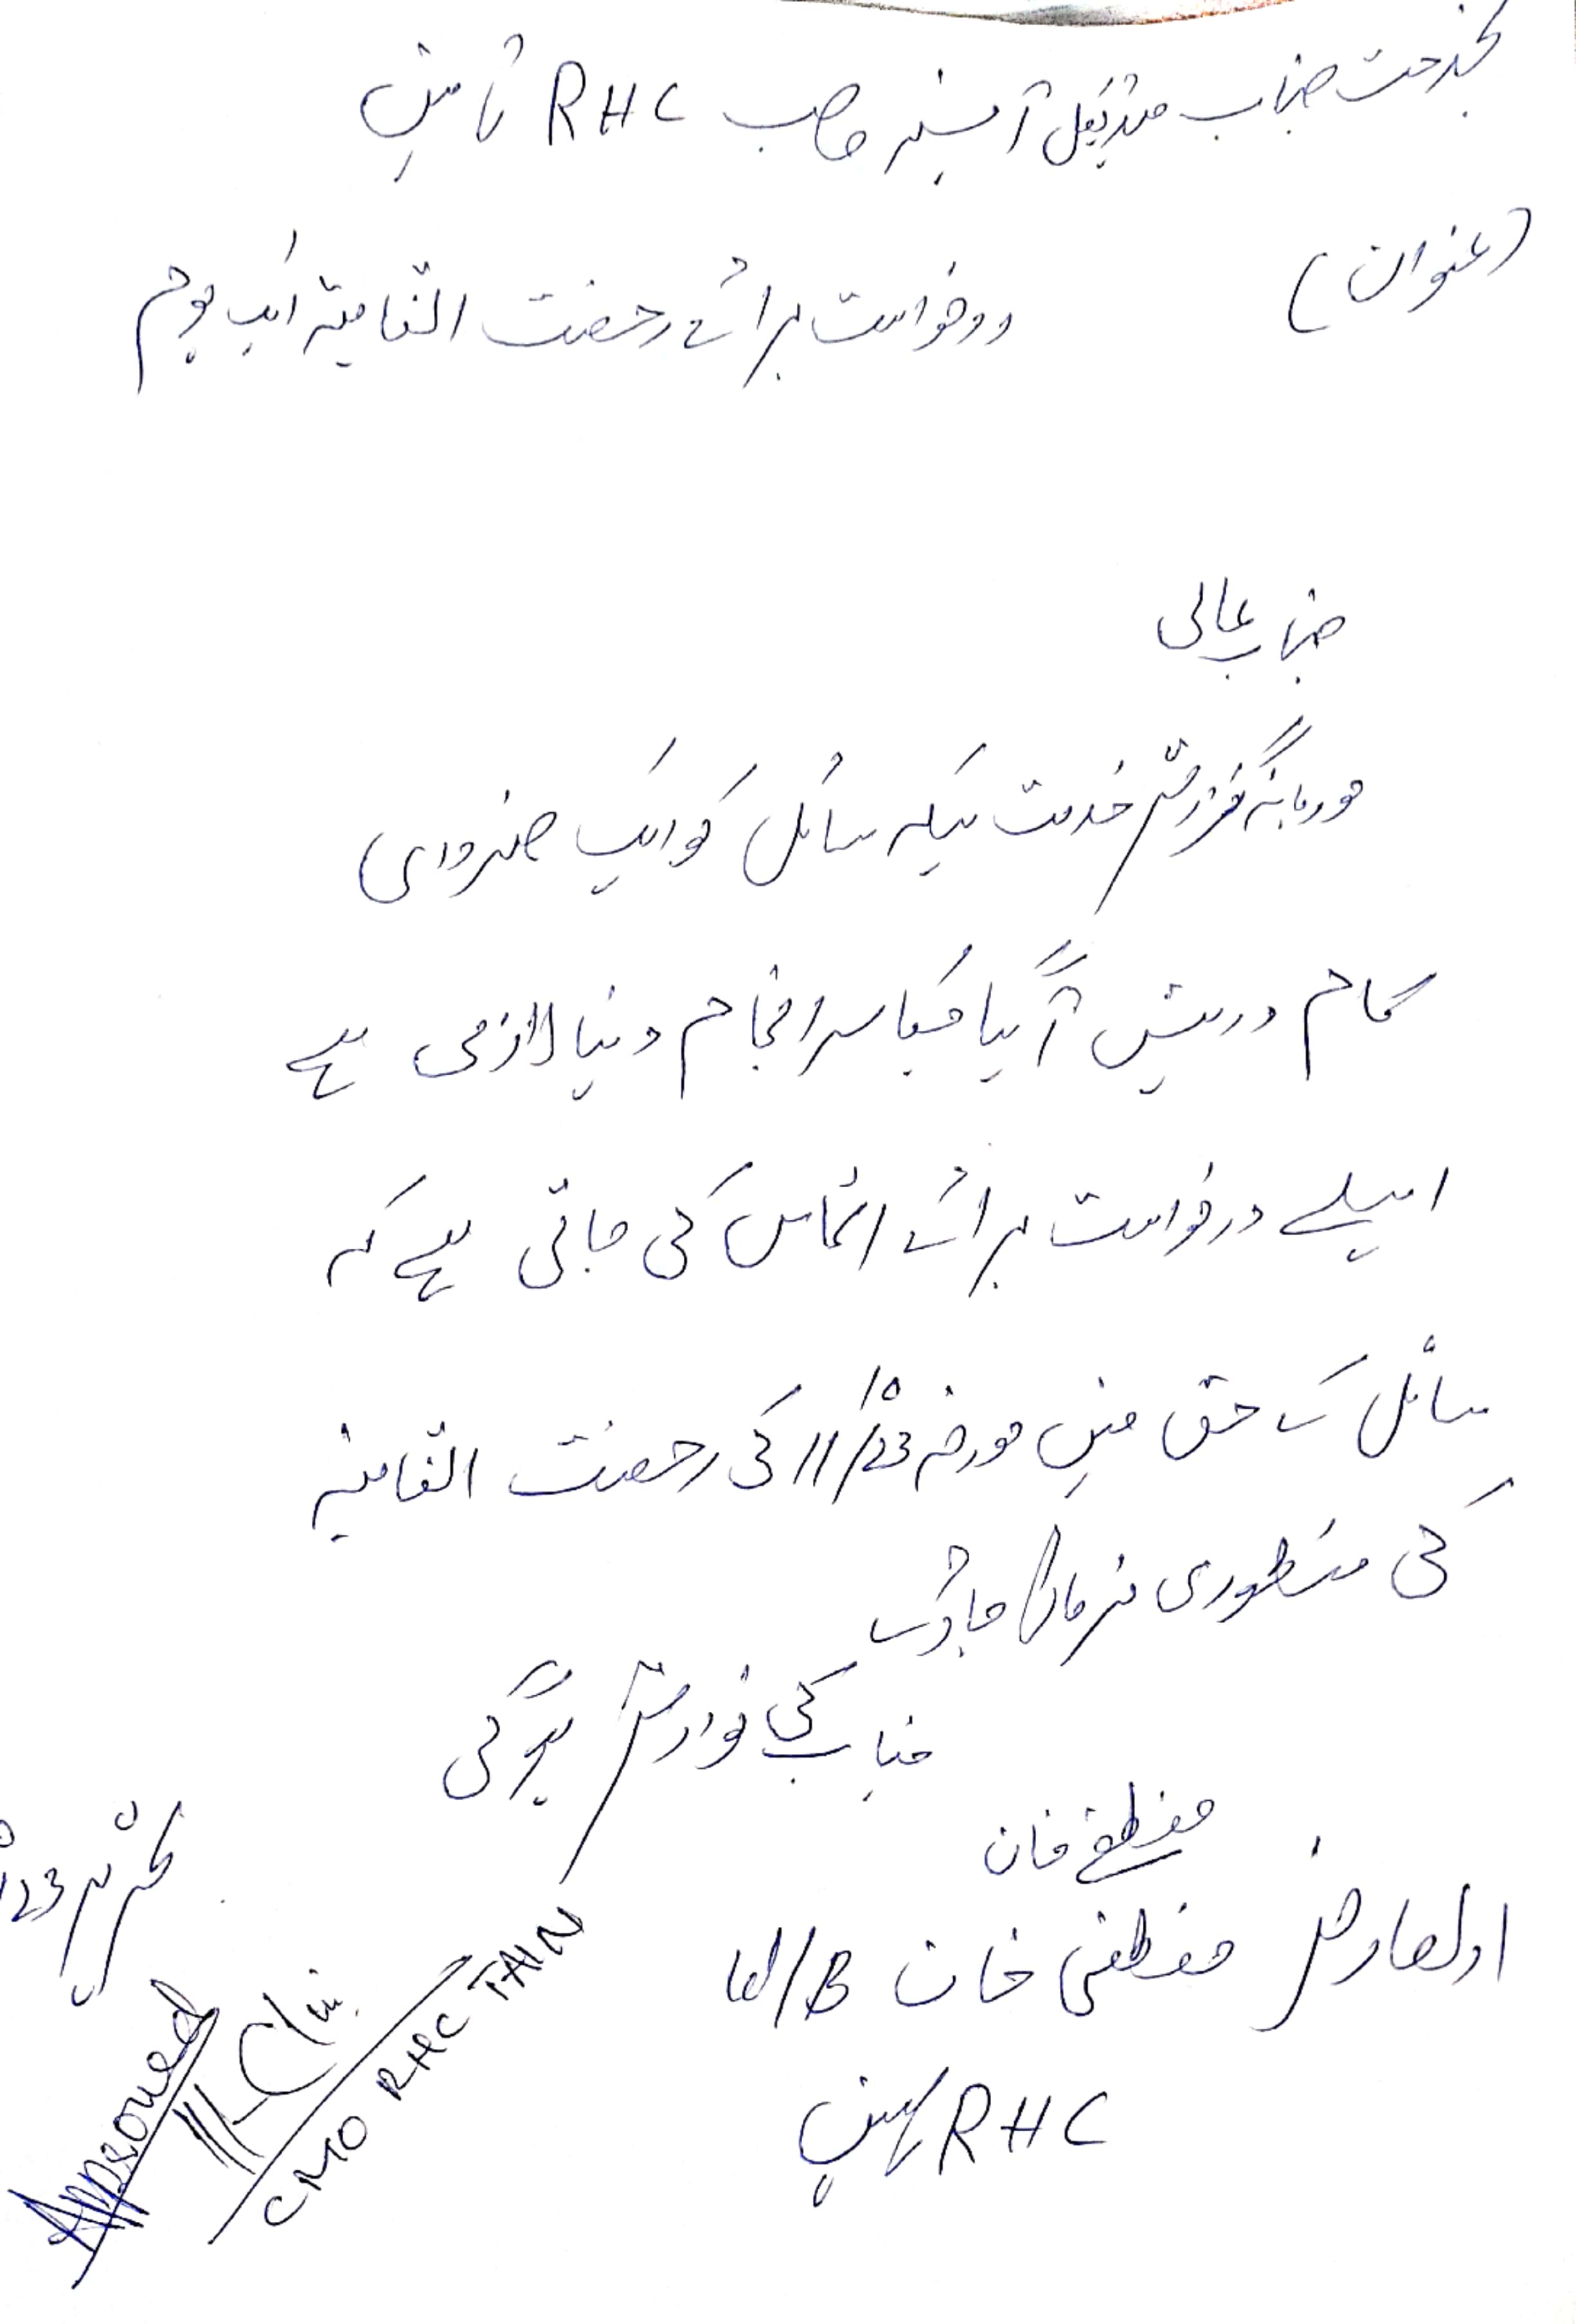 بخدمت جناب میڈیکل آفیسر صاحب RHC تائین
(عنوان)
درخواست برائے رخصت اتفاقیہ ایک یوم
جناب عالی
مودبانہ گزارش خدمت ہیکہ سائل کو ایک ضروری
کام درپیش آ گیا جسکا سرانجام دینا لازمی ہے
اسیلے درخواست برائے التماس کی جاتی ہے کہ
سائل کے حق میں مورخہ 11/10/23 کی رخصت اتفاقیہ
کی منظوری فرمائی جائے
جناب کی نوازش ہوگی
خان
العارض خان W/B
RHC تائین
Approved
CMO RHC TAIN